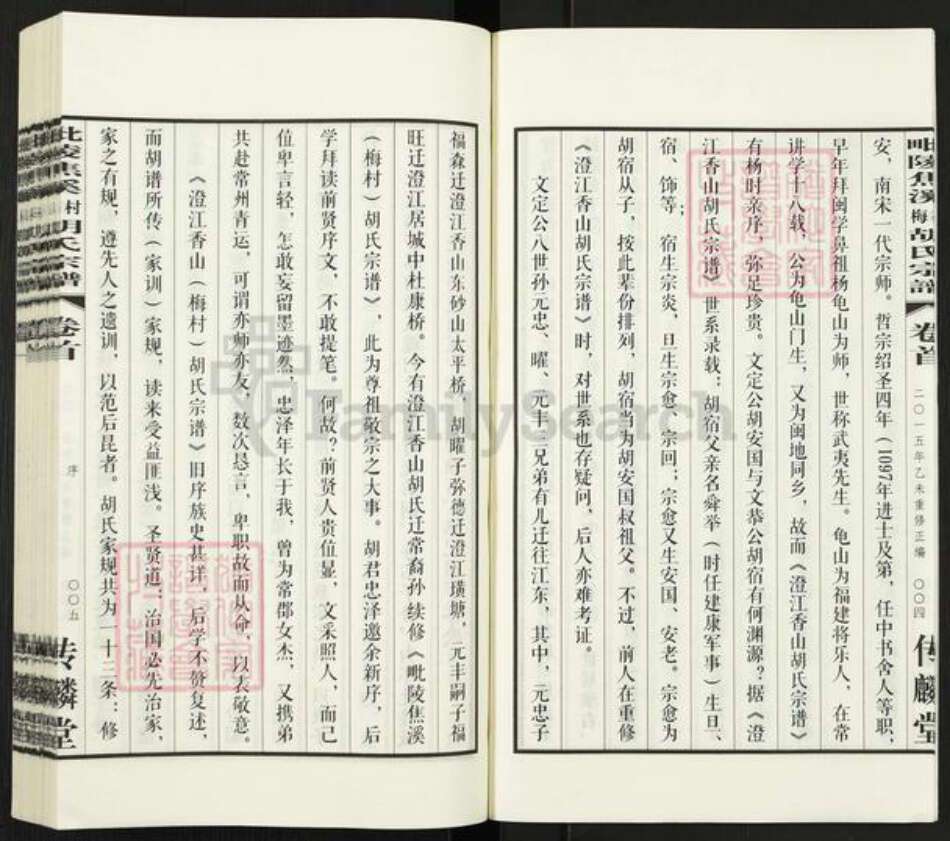 毗陵焦溪梅村胡氏宗谱
卷首
二〇一五年乙未重修正编
〇〇四
传麟堂
安，南宋一代宗师。哲宗绍圣四年（1097年进士及第，任中书舍人等职，
早年拜闽学鼻祖杨龟山为师，世称武夷先生。龟山为福建将乐人，在常
讲学十八载，公为龟山门生，又为闽地同乡，故而《澄江香山胡氏宗谱》
有杨时亲序，弥足珍贵。文定公胡安国与文恭公胡宿有何渊源？据《澄
江香山胡氏宗谱》世系录载：胡宿父亲名舜举（时任建康军事）生旦、
宿、饰等；宿生宗炎，旦生宗愈、宗回；宗愈又生安国、安老。宗愈为
胡宿从子，按此辈份排列，胡宿当为胡安国叔祖父。不过，前人在重修
《澄江香山胡氏宗谱》时，对世系也存疑问，后人亦难考证。
文定公八世孙元忠、曜、元丰三兄弟有儿迁往江东，其中，元忠子
福森迁澄江香山东砂山太平桥，胡曜子弥德迁澄江璜塘，元丰嗣子福
旺迁澄江居城中杜康桥。今有澄江香山胡氏迁常裔孙 续修《毗陵焦溪
（梅村）胡氏宗谱》，此为尊祖敬宗之大事。胡君忠泽邀余新序，后
学拜读前贤序文，不敢提笔。何故？前贤人贵位显，文采照人，而己
位卑言轻，怎敢妄留墨迹然，忠泽年长于我，曾为常郡女杰，又携弟
共赴常州青运，可谓亦师亦友，数次恳言，卑职故而从命，以表敬意。
《澄江香山（梅村）胡氏宗谱》旧序族史甚详，后学不赘复述，
而胡谱所传（家训）家规，读来受益匪浅。圣贤道：治国必先治家，
家之有规，遵先人之遗训，以范后昆者。胡氏家规共为一十三条：修
毗陵焦溪村胡氏宗谱
卷首
序
〇〇五
传麟堂
FamilySearch